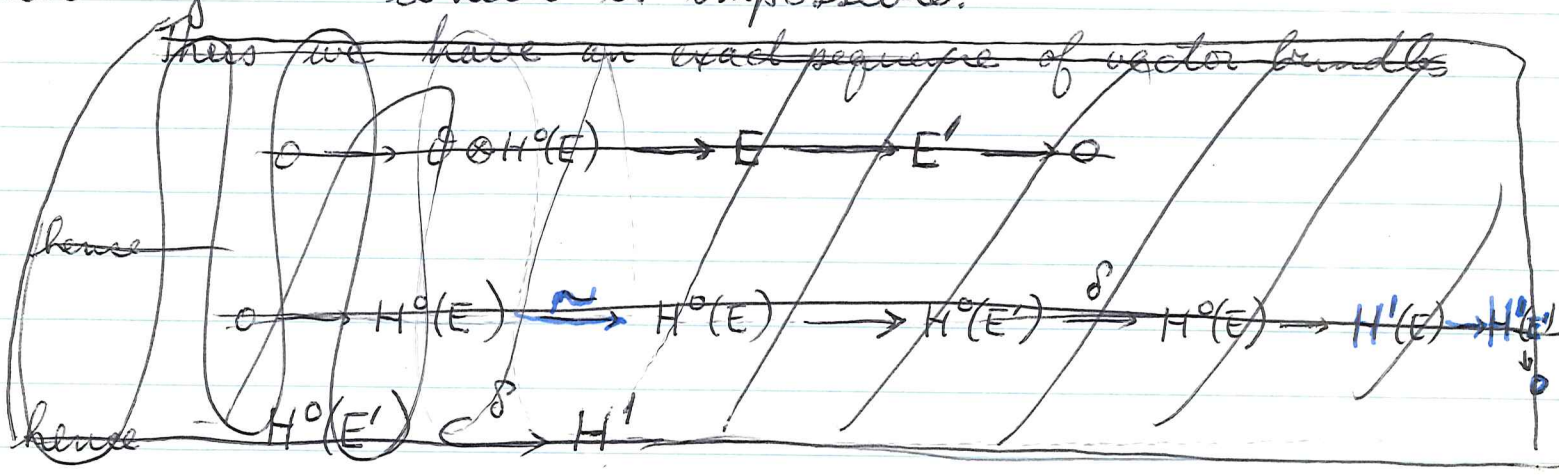 impossible.
Thus we have an exact sequence of vector bundles
0 → O ⊗ H⁰(E) → E → E' → 0
hence
0 → H⁰(E) ~→ H⁰(E) → H⁰(E') δ→ H⁰(E) → H¹(E) → H¹(E') → 0
hence H⁰(E') δ↪ H¹